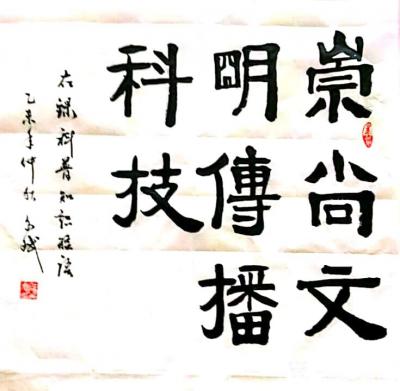 崇尚文
明傳播
科技
右錄科普知識語
乙未年仲秋